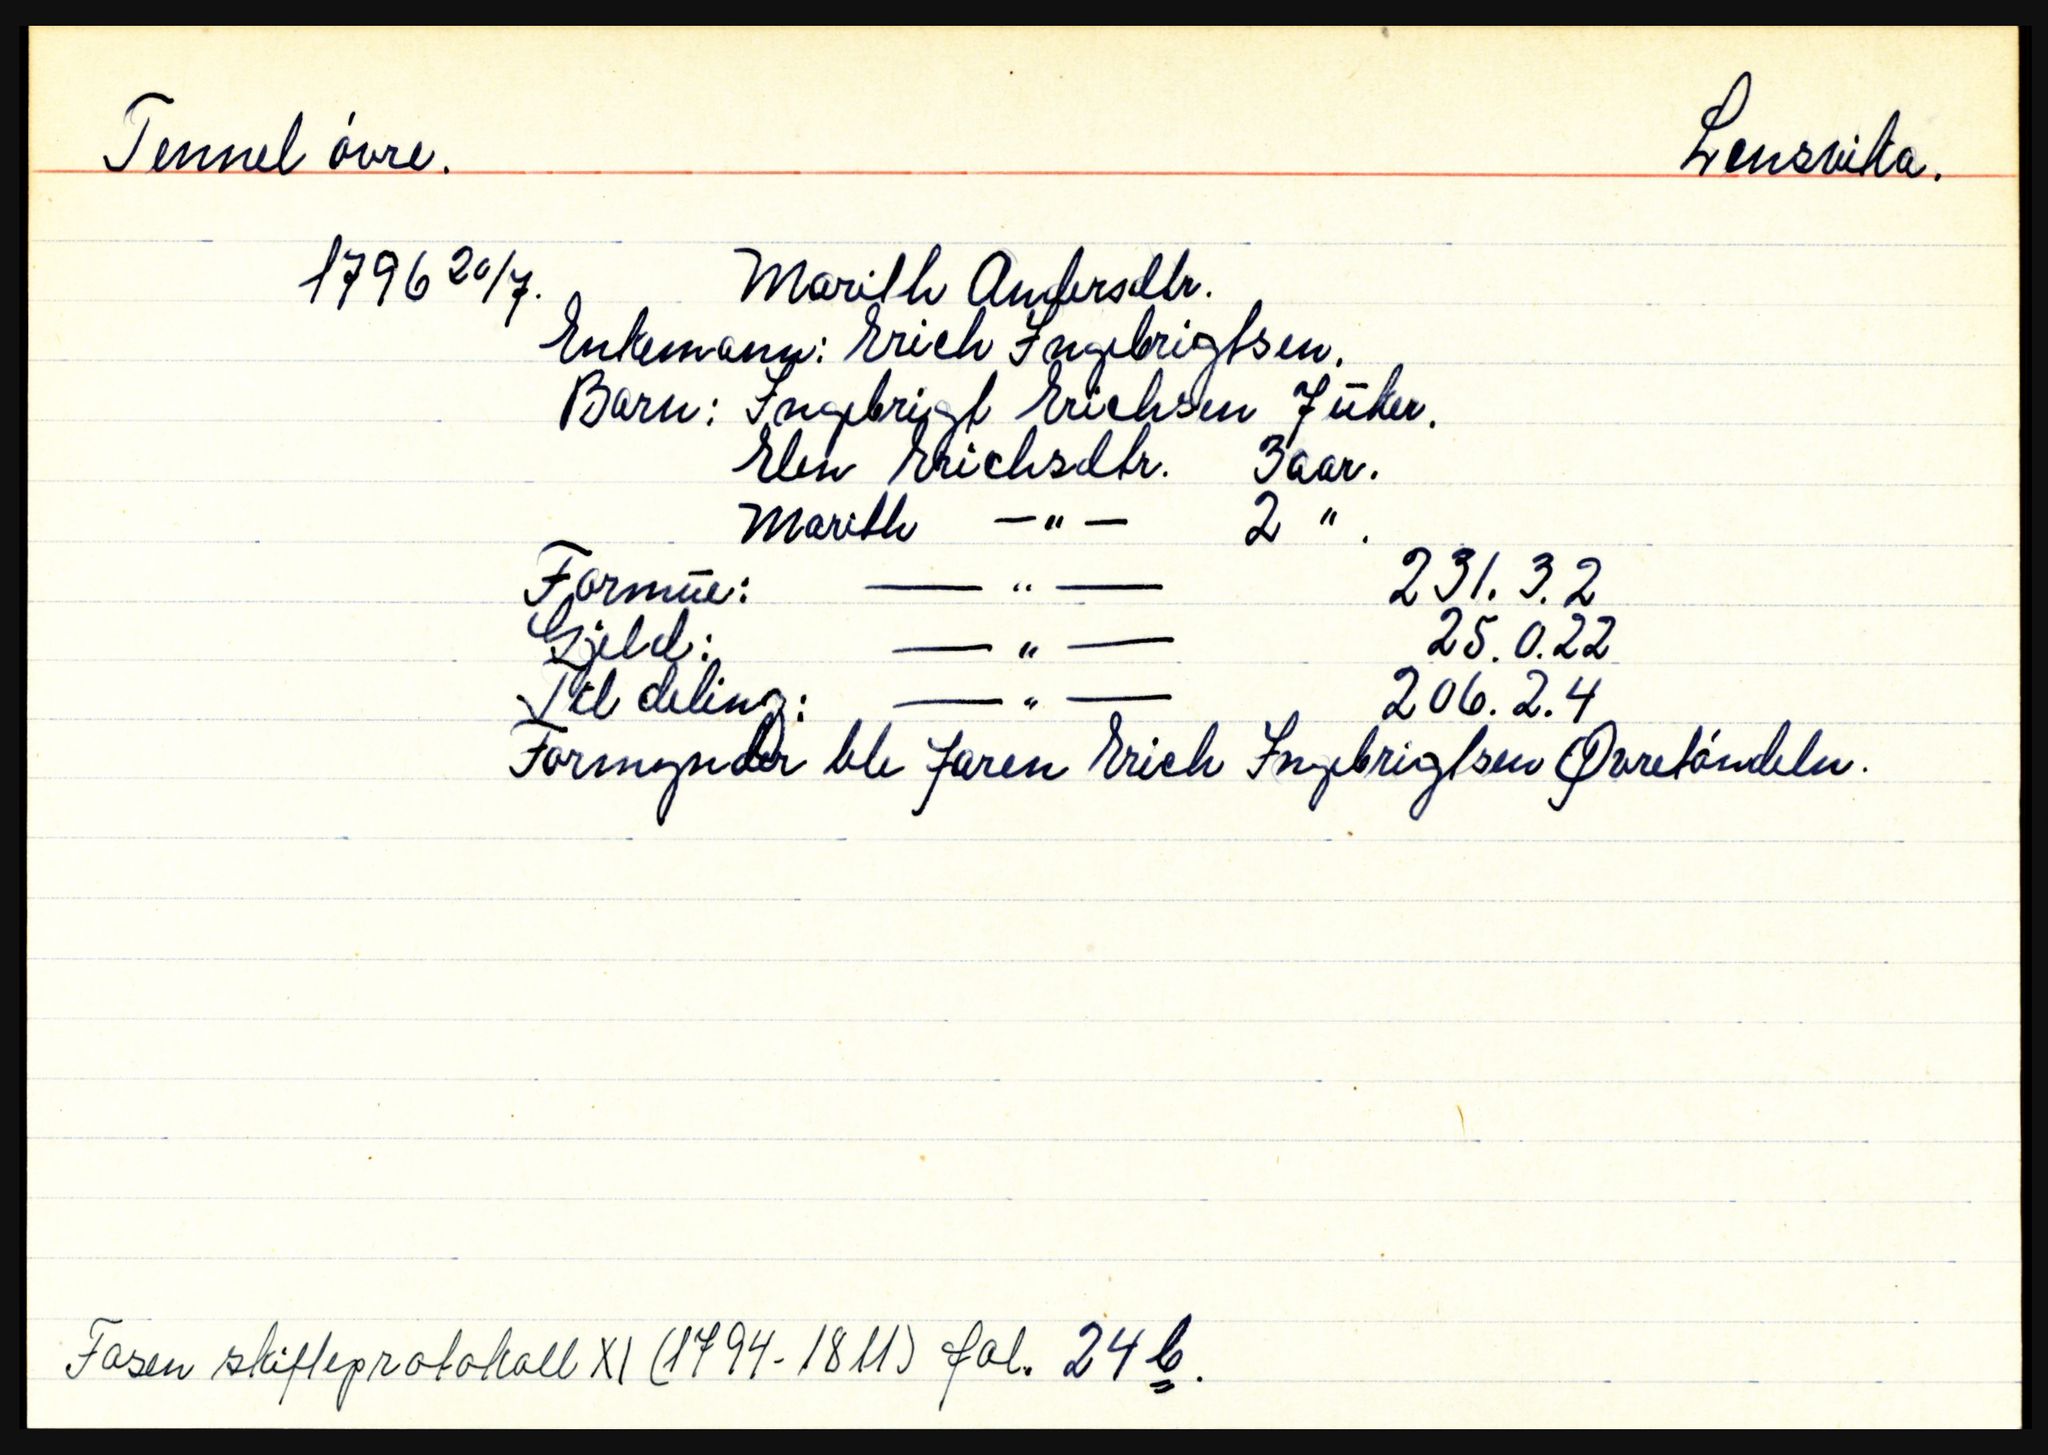 Tennel óvre. Lensvika.
1796 20/7. Marith Andersdtr.
Enkemann: Erich Ingebrigtsen.
Barn: Ingebrigt Erichsen 7 ūker.
Elen Erichsdtr. 3 aar.
Marith —"— 2 ".
Formūe: —"— 231.3.2
Gjeld: —"— 25.0.22
Til deling: —"— 206.2.4
Formynder ble faren Erich Ingebrigtsen Øvretóndeln.
Fosen skifteprotokoll XI (1794-1811) fol. 24 b.